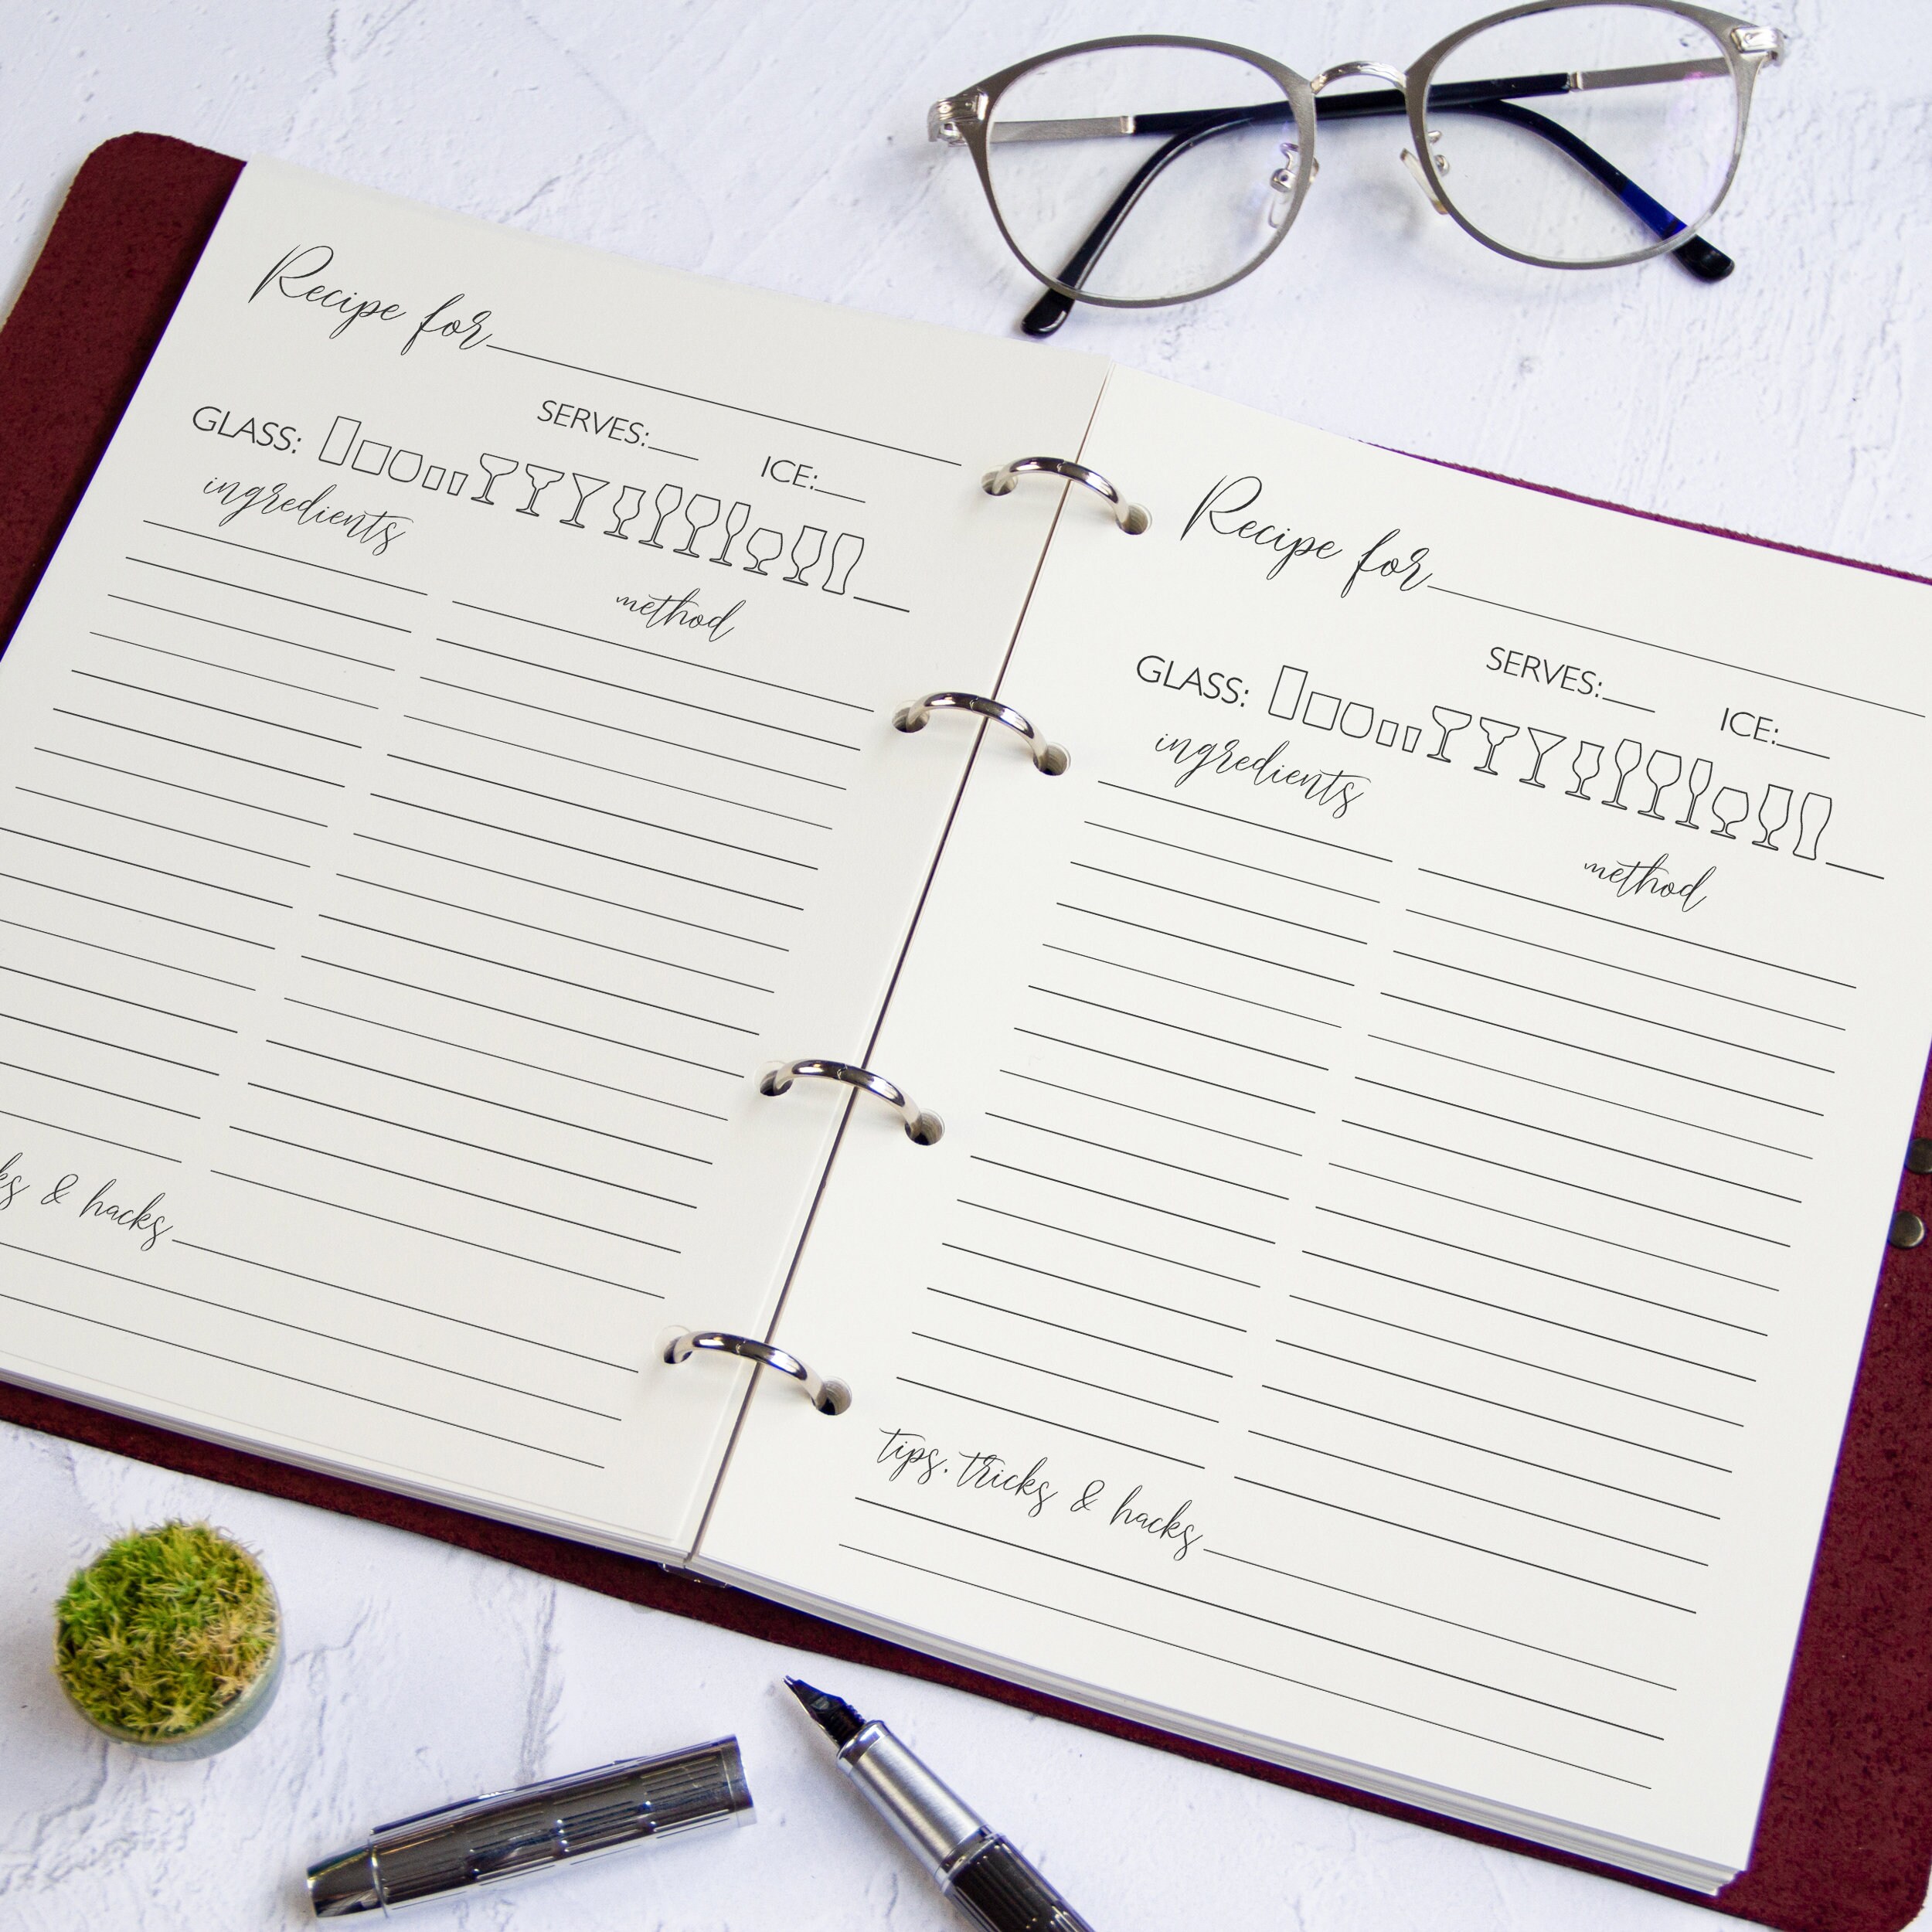 Recipe for
SERVES: ICE:
GLASS:
ingredients
method
& hacks
Recipe for
SERVES: ICE:
GLASS:
ingredients
method
tips, tricks & hacks